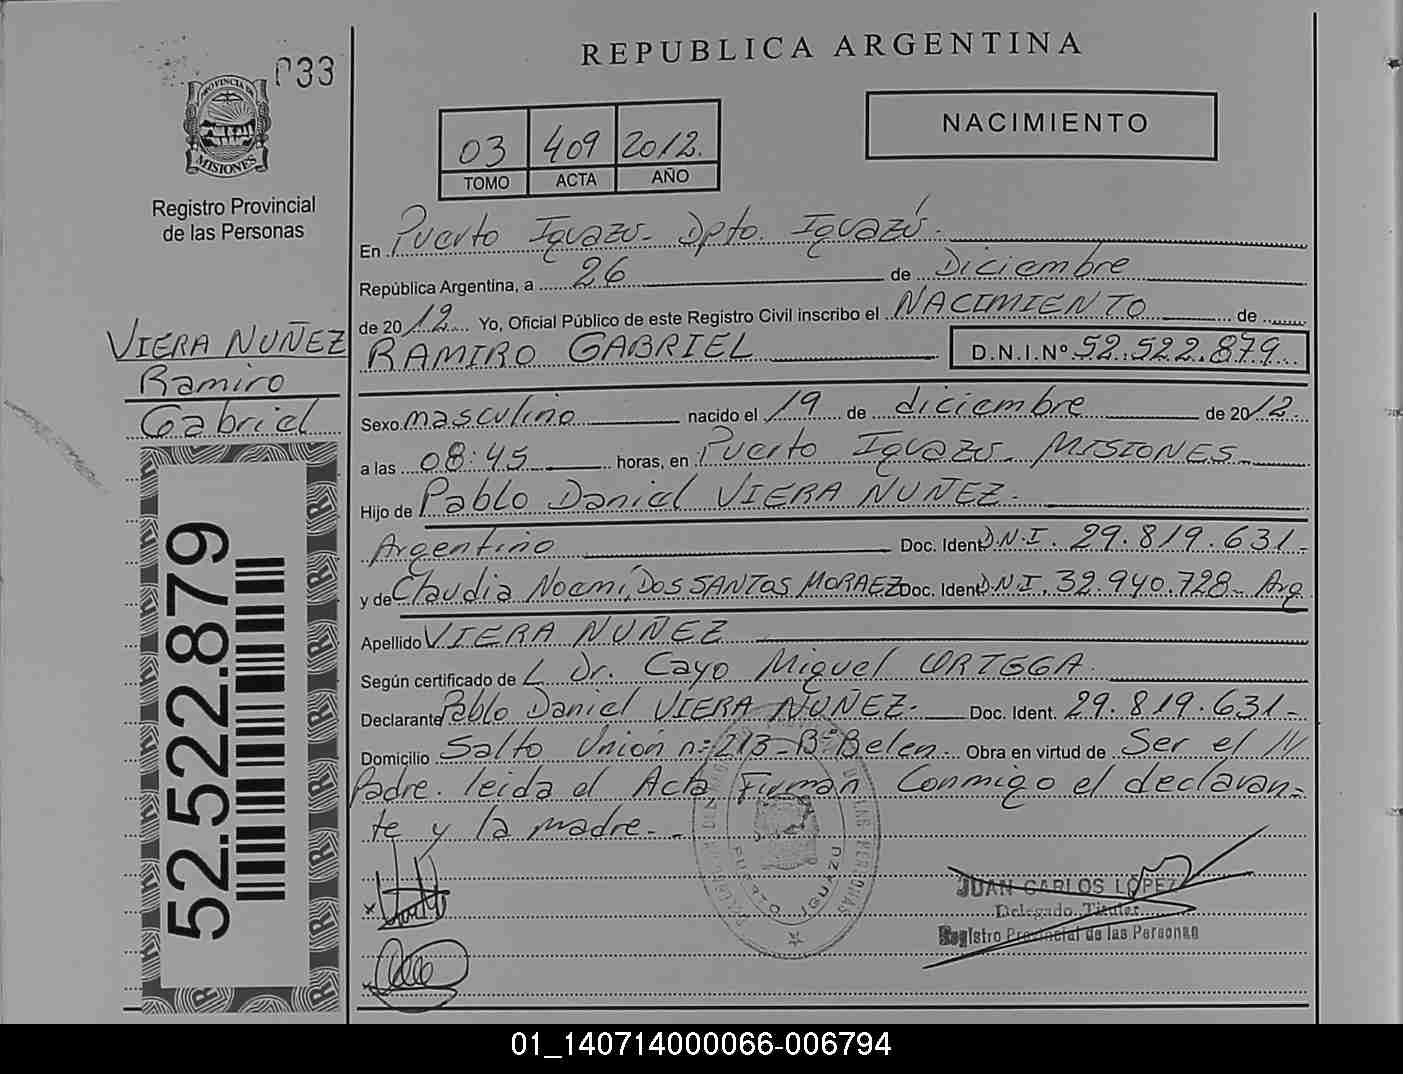 REPUBLICA ARGENTINA
033
PROVINCIA DE
MISIONES
Registro Provincial
de las Personas
03 409 2012.
TOMO ACTA AÑO
NACIMIENTO
En Puerto Iguazú- Dpto. Iguazú.
República Argentina, a 26 de Diciembre
de 2012 Yo, Oficial Público de este Registro Civil inscribo el NACIMIENTO de
RAMIRO GABRIEL D.N.I.Nº 52.522.879
VIERA NUÑEZ
Ramiro
Gabriel
52.522.879
Sexo masculino nacido el 19 de diciembre de 2012.
a las 08:45 horas, en Puerto Iguazú- MISIONES-
Hijo de Pablo Daniel VIERA NUÑEZ.
Argentino Doc. Ident D.N.I. 29.819.631-
y de Claudia Noemí, DOS SANTOS MORAEZ Doc. Ident D.N.I. 32.940.728- Arg
Apellido VIERA NUÑEZ
Según certificado de L Dr. Cayo Miguel ORTEGA.
Declarante Pablo Daniel VIERA NUÑEZ. Doc. Ident. 29.819.631-
Domicilio Salto Unión nº 213-Bº Belen- Obra en virtud de Ser el
Padre. leida el Acta Firman Conmigo el declaran-
te y la madre-.
JUAN CARLOS LOPEZ
Delegado Titular
Registro Provincial de las Personas
01_140714000066-006794